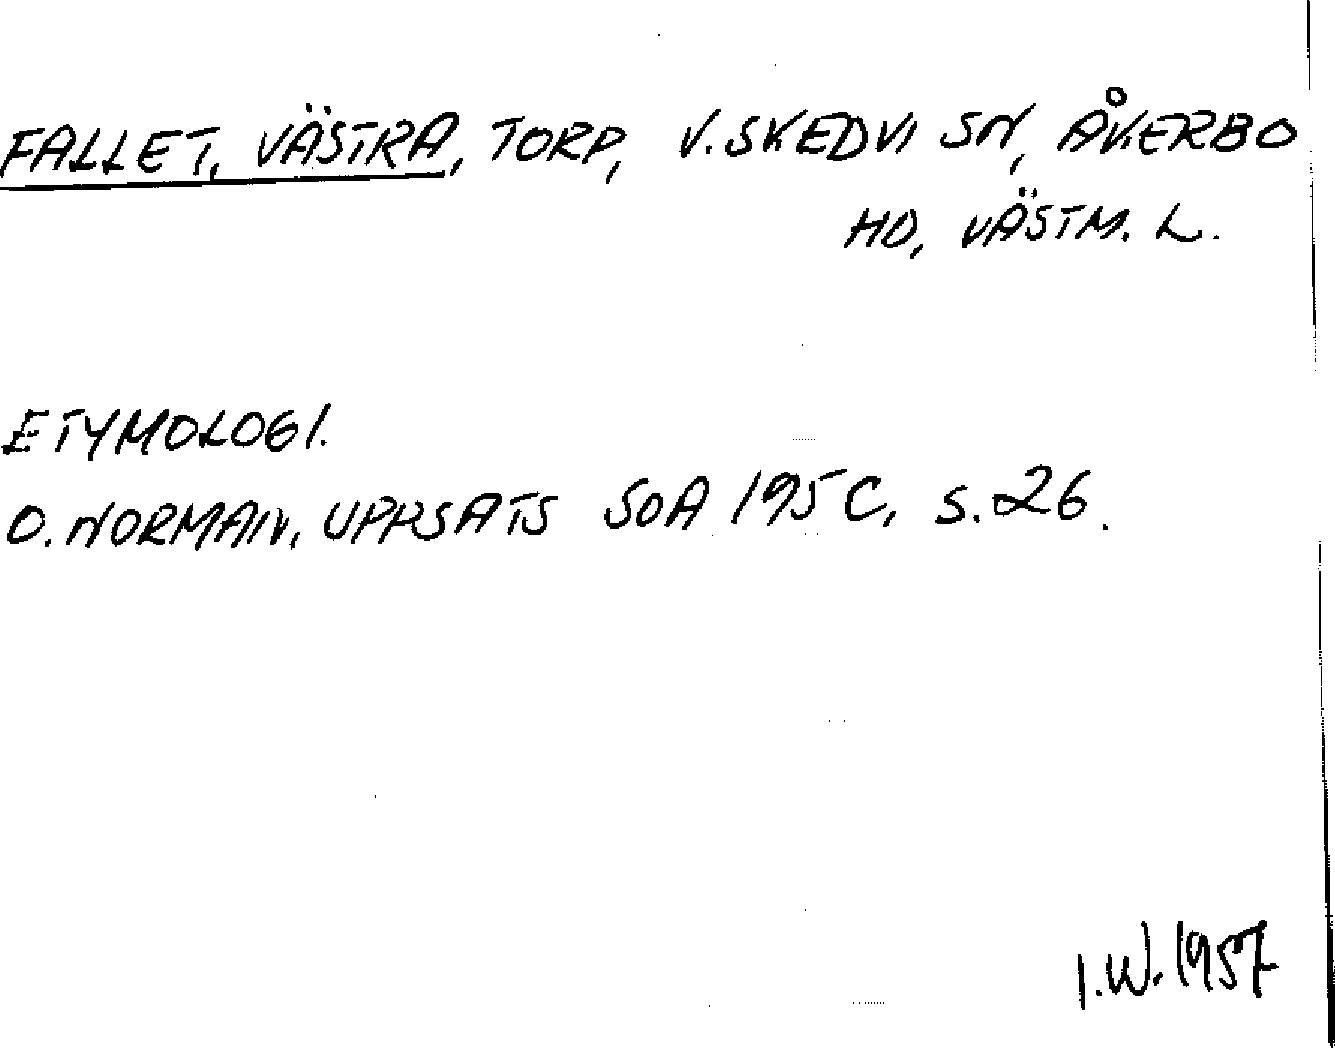 FALLET, VÄSTRA, TORP, V. SKEDVI SN, ÅKERBO
HD, VÄSTM. L.
ETYMOLOGI.
O. NORMAN, UPPSATS SOA 1950, S. 26.
I.W. 1957